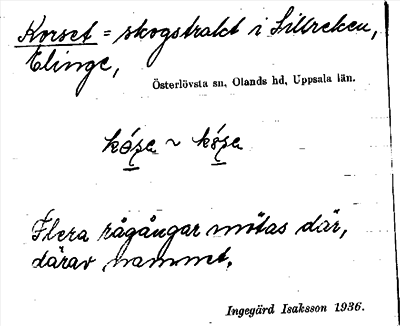 Korset = skogstrakt i Sillreken,
Elinge,
Österlövsta sn, Olands hd, Uppsala län.
Flera rågångar mötas där,
därav namnet.
Ingegärd Isaksson 1936.